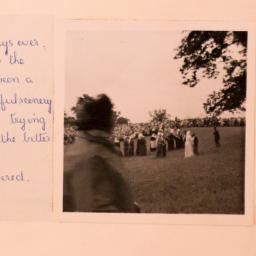 ys over,
the
been a
ful scenery
trying
the bitter
ered.